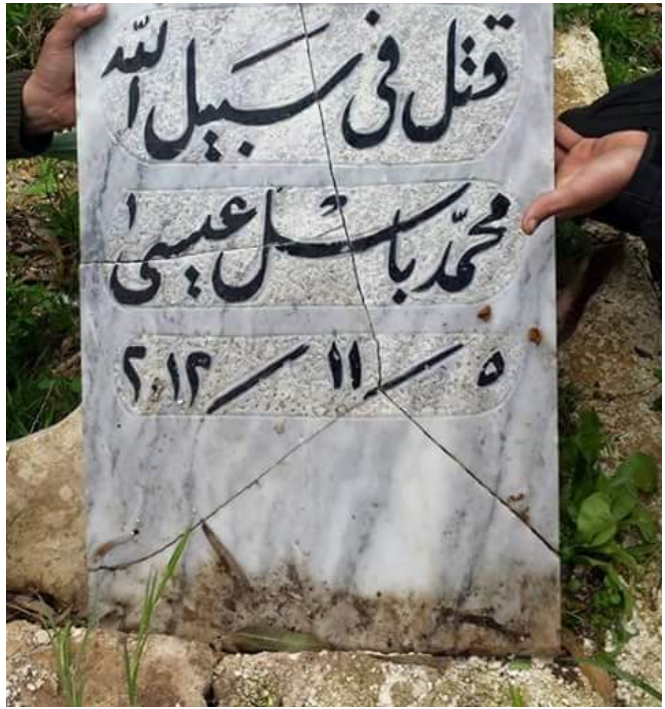 قتل في سبيل الله
محمّد باسل عيسى
٥ / ١١ / ٢٠١٢